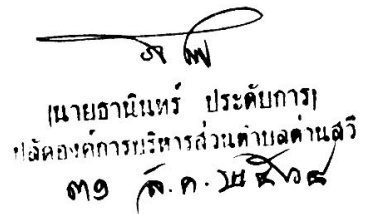 (นายธานินทร์ ประดับการ)
ปลัดองค์การบริหารส่วนตำบลด่านสวี
๓๑ ส.ค. ๒๕๖๔